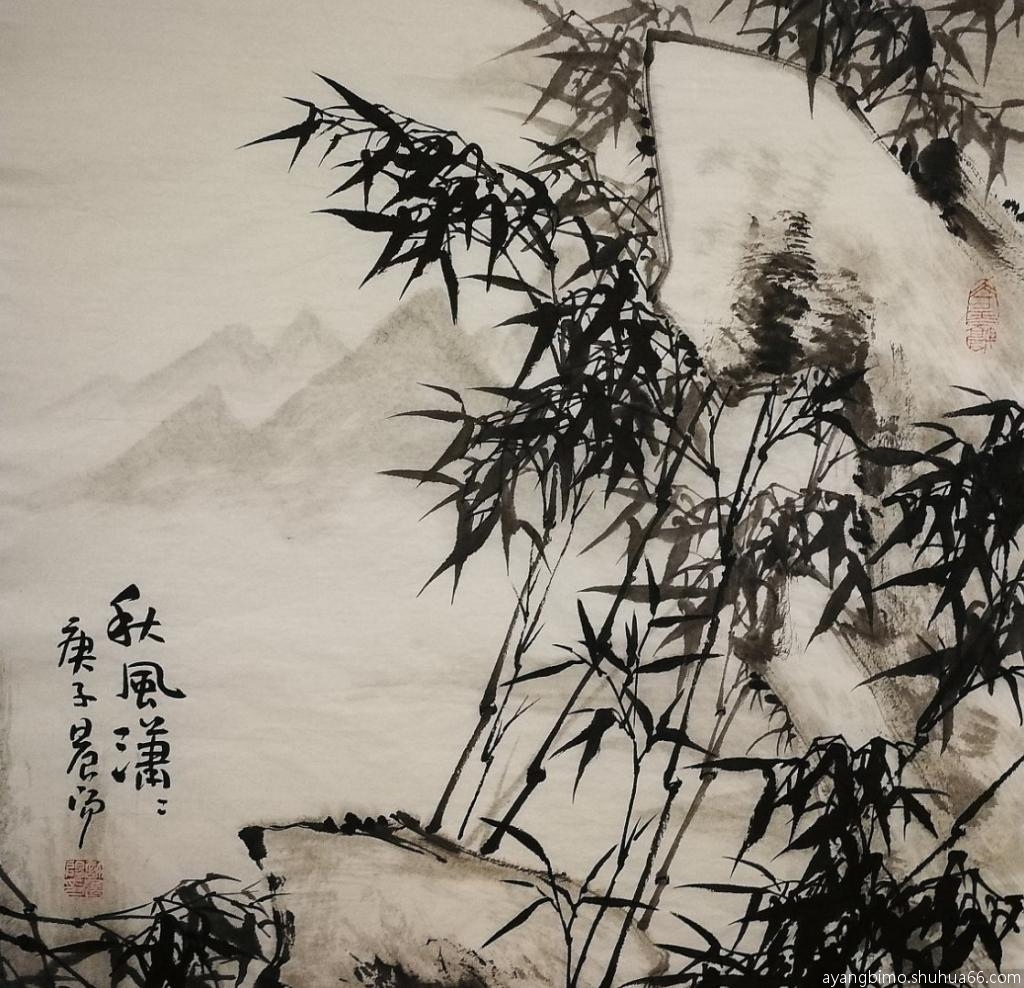 秋風瀟〻
庚子晨陽
ayangbimo.shuhua66.com